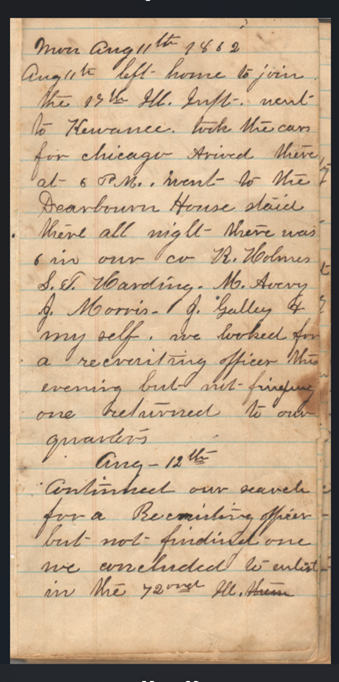 Mon Aug 11th 1862
Aug 11th left home to join
the 17th Ill. Inft. went
to Kewanee. took the cars
for chicago Arived there
at 6 P.M., went to the
Dearbourn House staid
there all night there was
6 in our co R. Holmes
S. T. Harding. M. Avery
J. Morris. J. Galley &
my self. we looked for
a recruiting officer this
evening but not finding
one returned to our
quarters
Aug - 12th
Continued our search
for a Recruiting officer
but not finding one
we concluded to enlist
in the 72ond Ill.